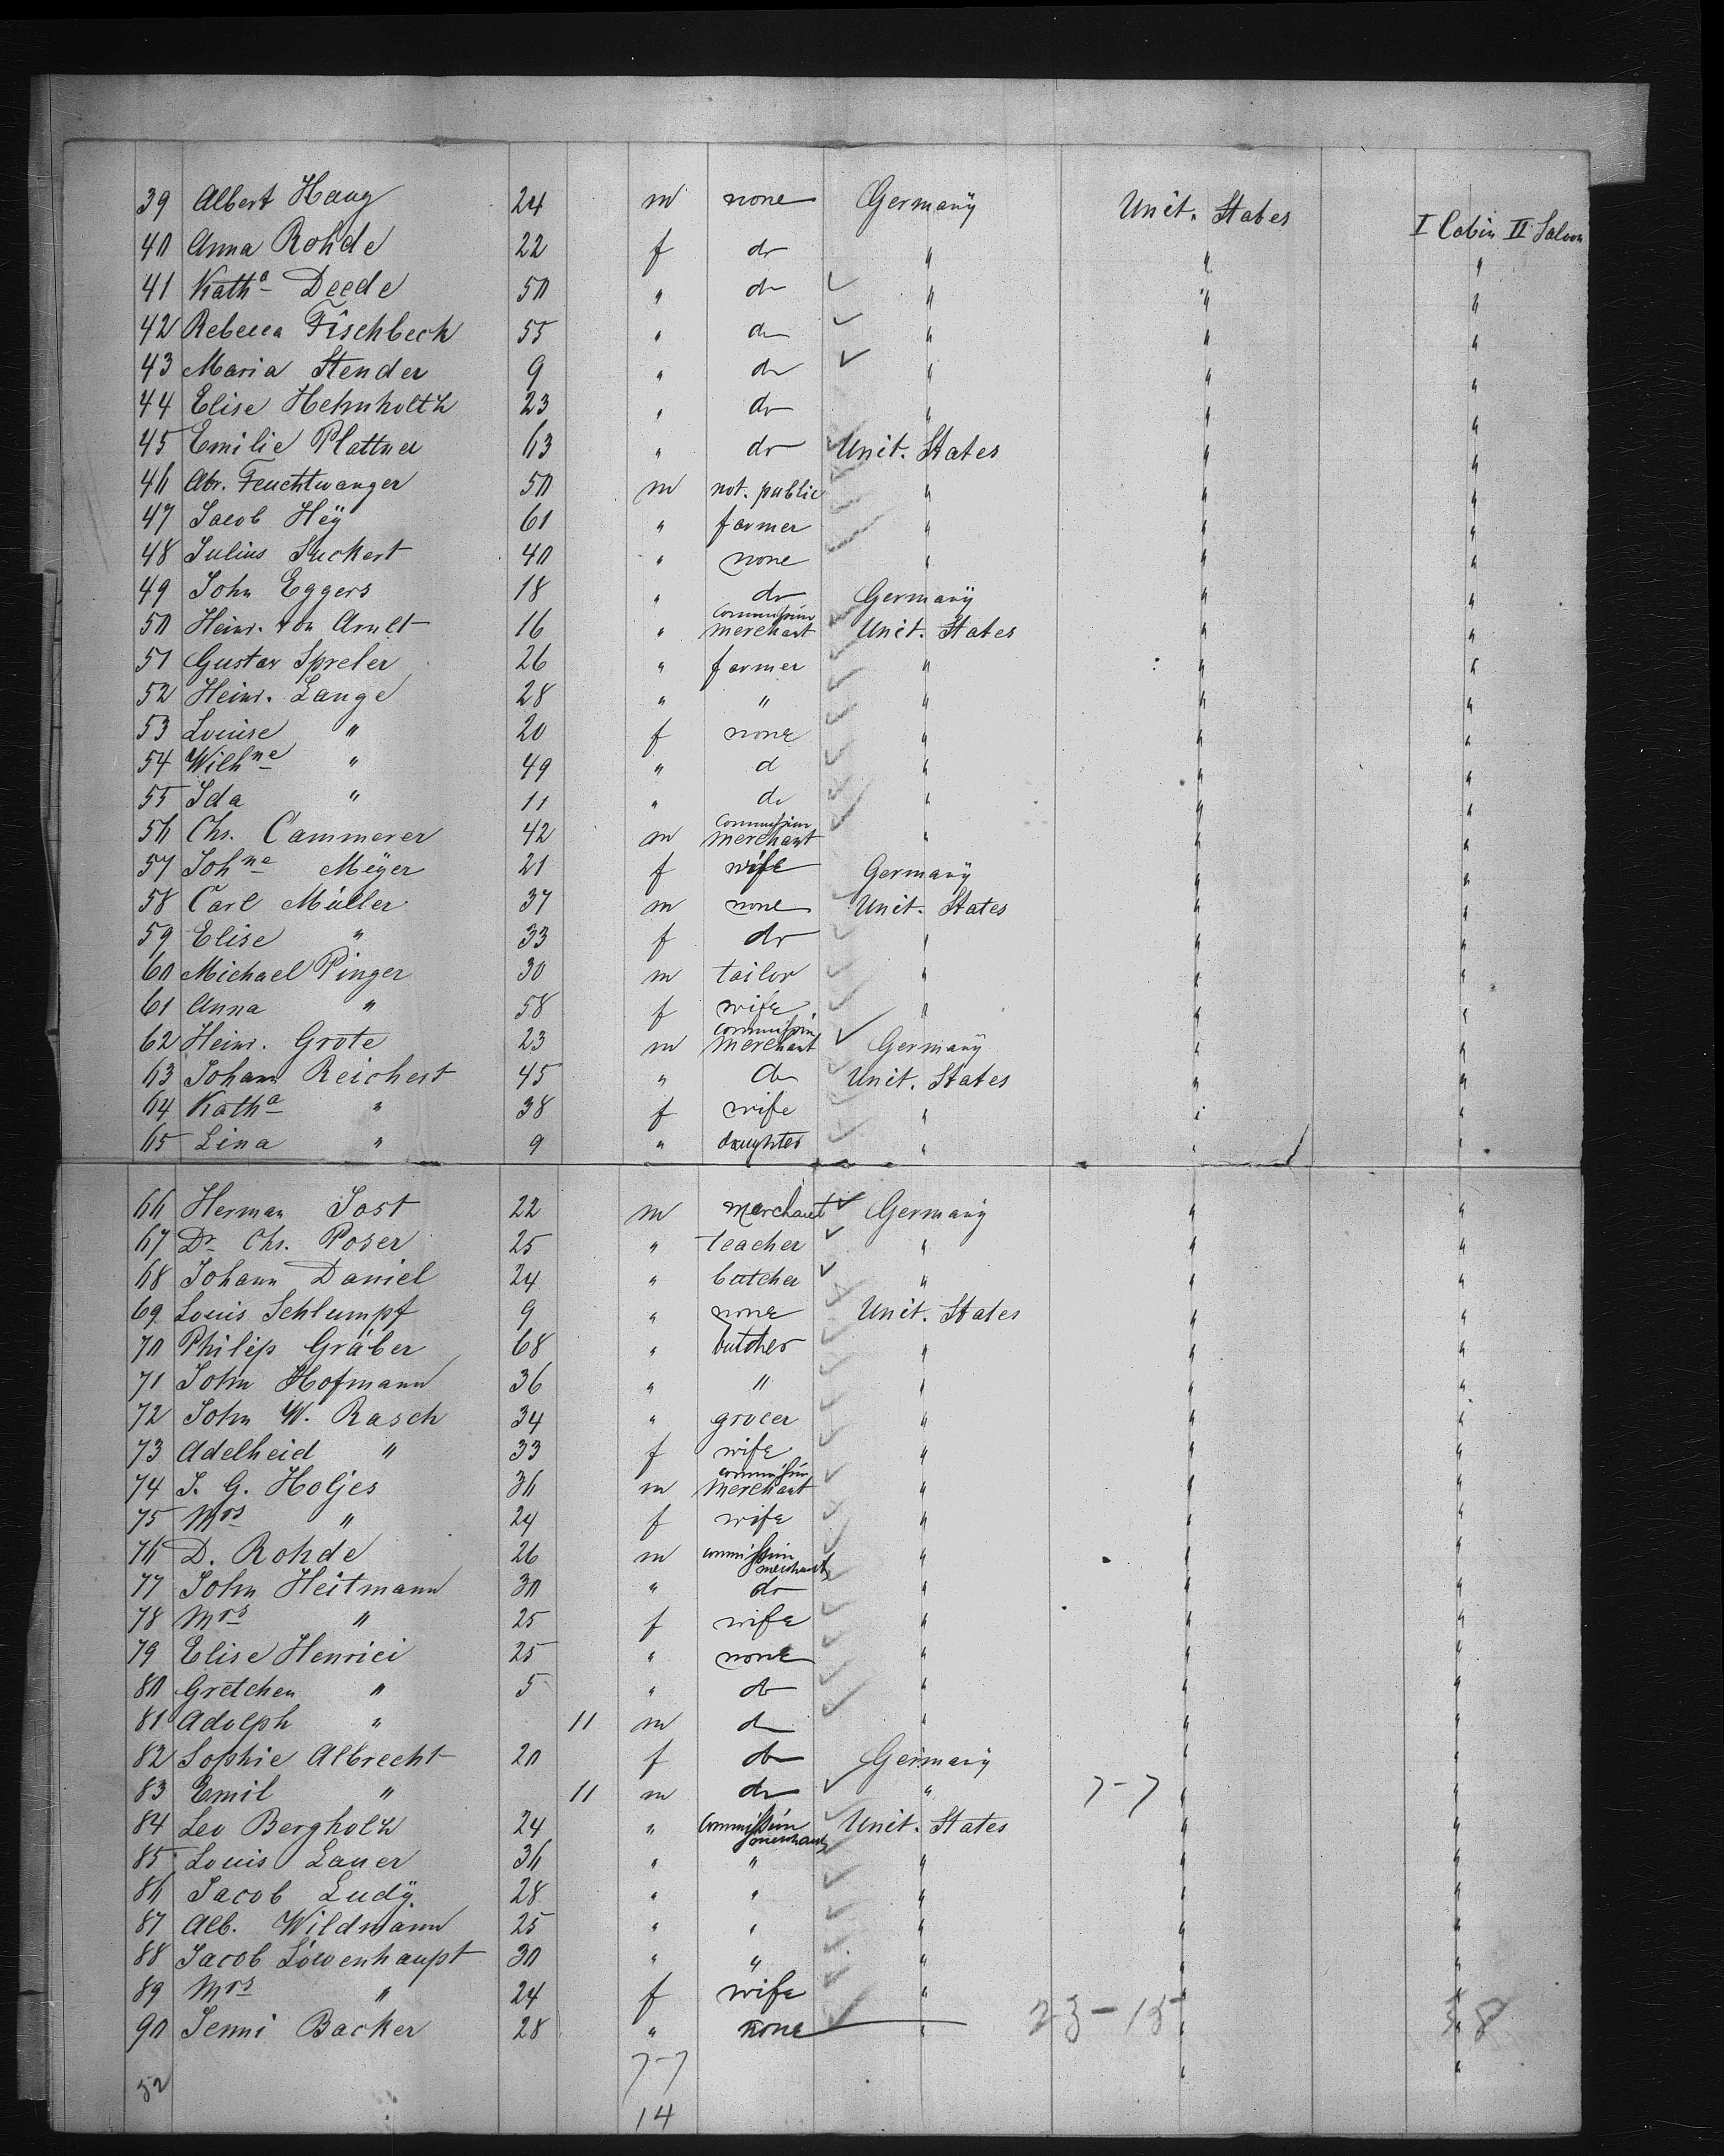 39 Albert Haug 24 m none Germanÿ Unit. States I Cabin II Saloon
40 Anna Rohde 22 f do " " "
41 Kath<sup>a</sup> Deede 50 " do " " "
42 Rebecca Fischbeck 55 " do " " "
43 Maria Stender 9 " do " " "
44 Elise Helmholtz 23 " do " " "
45 Emilie Plattner 63 " do Unit. States " "
46 Abr. Feuchtwanger 50 m not. public " " "
47 Jacob Heÿ 61 " farmer " " "
48 Julius Suckert 40 " none " " "
49 John Eggers 18 " do Germanÿ " "
50 Heinr. von 16 " commission merchant Unit. States " "
51 Gustav Spreler 26 " farmer " " "
52 Heinr. Lange 28 " " " " "
53 Louise " 20 f none " " "
54 Wilh<sup>ne</sup> " 49 " d " " "
55 Ida " 11 " do " " "
56 Chs. Cammerer 42 m commission merchant " " "
57 Joh<sup>ne</sup> Meÿer 21 f wife Germanÿ " "
58 Carl Müller 37 m none Unit. States " "
59 Elise " 33 f do " " "
60 Michael Pinger 30 m tailor " " "
61 Anna " 58 f wife " " "
62 Heinr. Grote 23 m commission merchant Germanÿ " "
63 Johann Reichert 45 " do Unit. States " "
64 Kath<sup>a</sup> " 38 f wife " " "
65 Lina " 9 " daughter " " "
66 Herman Jost 22 m merchant Germanÿ " "
67 Dr. Chs. Poser 25 " teacher " " "
68 Johann Daniel 24 " butcher " " "
69 Louis Schlumpf 9 " none Unit. States " "
70 Philip Gräber 68 " butcher " " "
71 John Hofmann 36 " " " " "
72 John W. Rasch 34 " grocer " " "
73 Adelheid " 33 f wife " " "
74 J. G. Holjes 36 m commission merchant " " "
75 Mrs " 24 f wife " " "
76 D. Rohde 26 m commission merchant " " "
77 John Heitmann 30 " do " " "
78 Mrs " 25 f wife " " "
79 Elise Henrici 25 " none " " "
80 Gretchen " 5 " do " " "
81 Adolph " 11 m do " " "
82 Sophie Albrecht 20 f do Germanÿ " "
83 Emil " 11 m do " 7-7 " "
84 Leo Bergholz 24 " commission merchant Unit. States " "
85 Louis Lauer 36 " " " " "
86 Jacob Ludÿ 28 " " " " "
87 Alb. Wildmann 25 " " " " "
88 Jacob Löwenhaupt 30 " " " " "
89 Mrs " 24 f wife " " "
90 Jenni Backer 28 " none " 23-15 " 38
52 7-7 " "
14